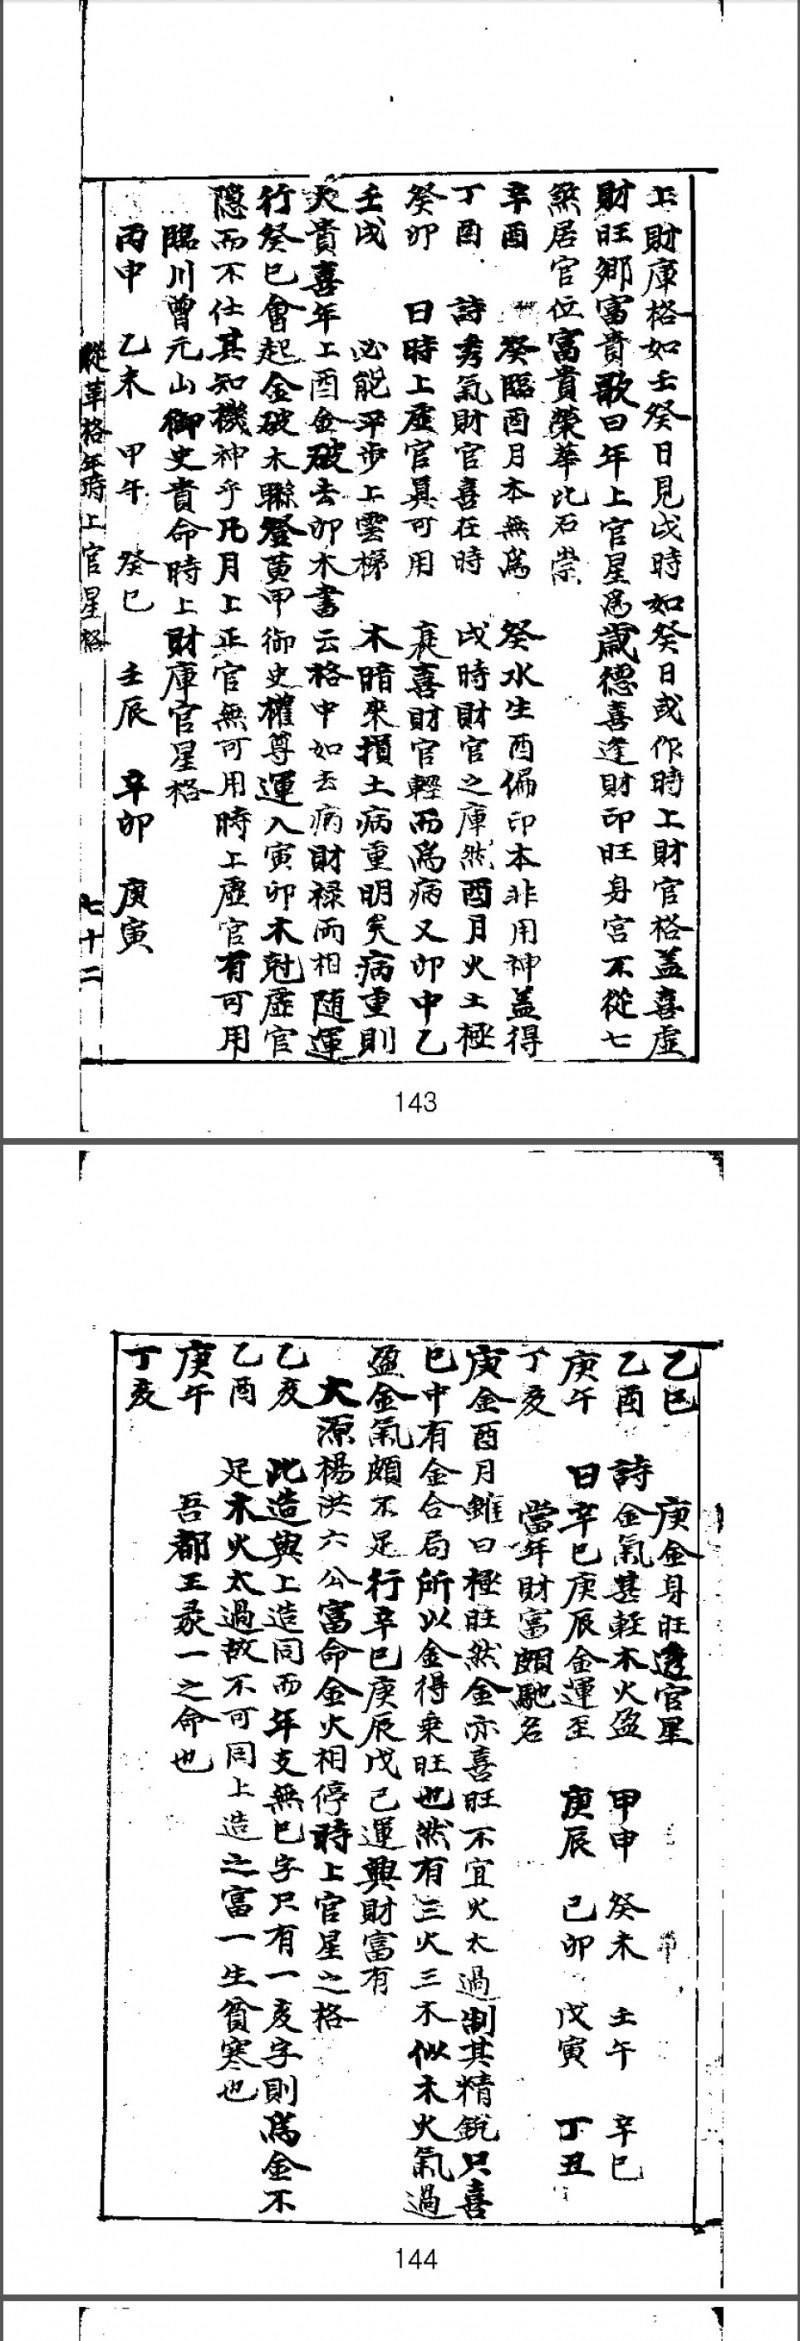 上財庫格如壬癸日見戌時如癸日或作時上財官格盖喜虛
財旺鄉富貴歌曰年上官星為歲德喜逢財印旺身宮不從七
煞居官位富貴榮華比石崇
辛酉 癸臨酉月本無為 癸水生酉偏印本非用神盖得
丁酉 詩秀氣財官喜在時 戌時財官之庫然酉月火土極
癸卯 日時上虛官真可用 衰喜財官輕而為病又卯中乙
壬戌 必能平步上雲梯 木暗來損土病重明矣病重則
大貴喜年上酉金破去卯木書云格中如去病財禄两相随運
行癸巳會起金破木聯登黄甲御史權尊運入寅卯木尅虛官
隱而不仕其知機神乎凡月上正官無可用時上虛官有可用
臨川曾元山御史貴命時上財庫官星格
丙申 乙未 甲午 癸巳 壬辰 辛卯 庚寅
從革格年時上官星格 七十二
143
乙巳 庚金身旺透官星
乙酉 詩金氣甚軽木火盈 甲申 癸未 壬午 辛巳
庚午 日辛巳庚辰金運至 庚辰 己卯 戊寅 丁丑
丁亥 當年財富頗馳名
庚金酉月雖曰極旺然金亦喜旺不宜火太過制其精銳只喜
巳中有金合局所以金得乘旺也然有三火三木似木火氣過
盈金氣頗不足行辛巳庚辰戊己運興財富有
大源楊洪六公富命金火相停時上官星之格
乙亥 此造與上造同而年支無巳字只有一亥字則為金不
乙酉 足木火太過故不可同上造之富一生貧寒也
庚午 吾都王彔一之命也
丁亥
144